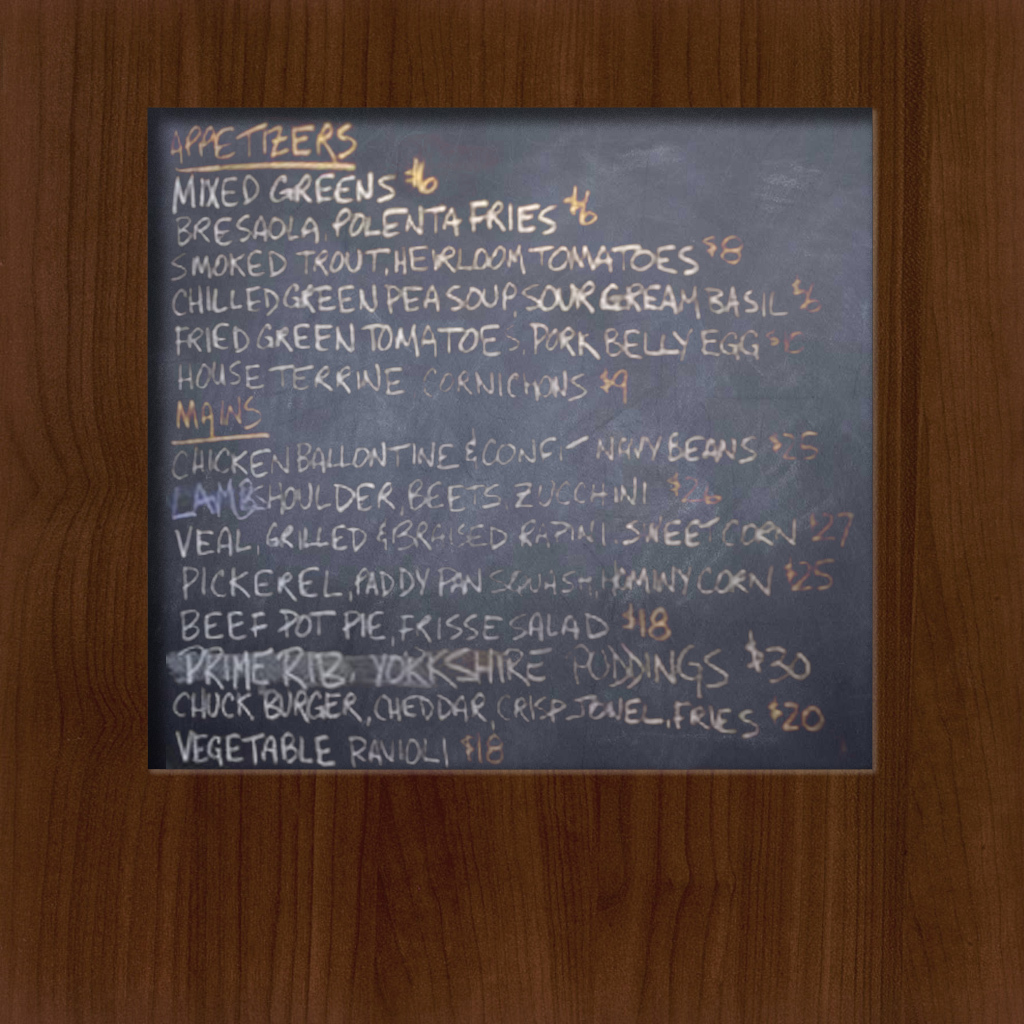 APPETIZERS
MIXED GREENS $6
BRESAOLA, POLENTA FRIES $6
SMOKED TROUT, HEIRLOOM TOMATOES $8
CHILLED GREEN PEA SOUP, SOUR CREAM BASIL $6
FRIED GREEN TOMATOES, PORK BELLY EGG
HOUSE TERRINE CORNICHONS $9
MAINS
CHICKEN BALLONTINE & CONFIT NAVY BEANS $25
LAMB SHOULDER, BEETS, ZUCCHINI $26
VEAL, GRILLED & BRAISED RAPINI, SWEET CORN $27
PICKEREL, PADDY PAN SQUASH, HOMINY CORN $25
BEEF POT PIE, FRISSE SALAD $18
PRIME RIB, YORKSHIRE PUDDINGS $30
CHUCK BURGER, CHEDDAR, CRISP JOWEL, FRIES $20
VEGETABLE RAVIOLI $18